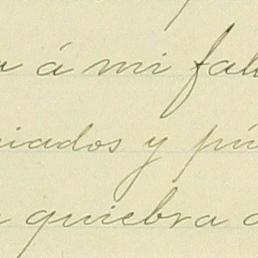 á mi fal
iados y pú
quiebra